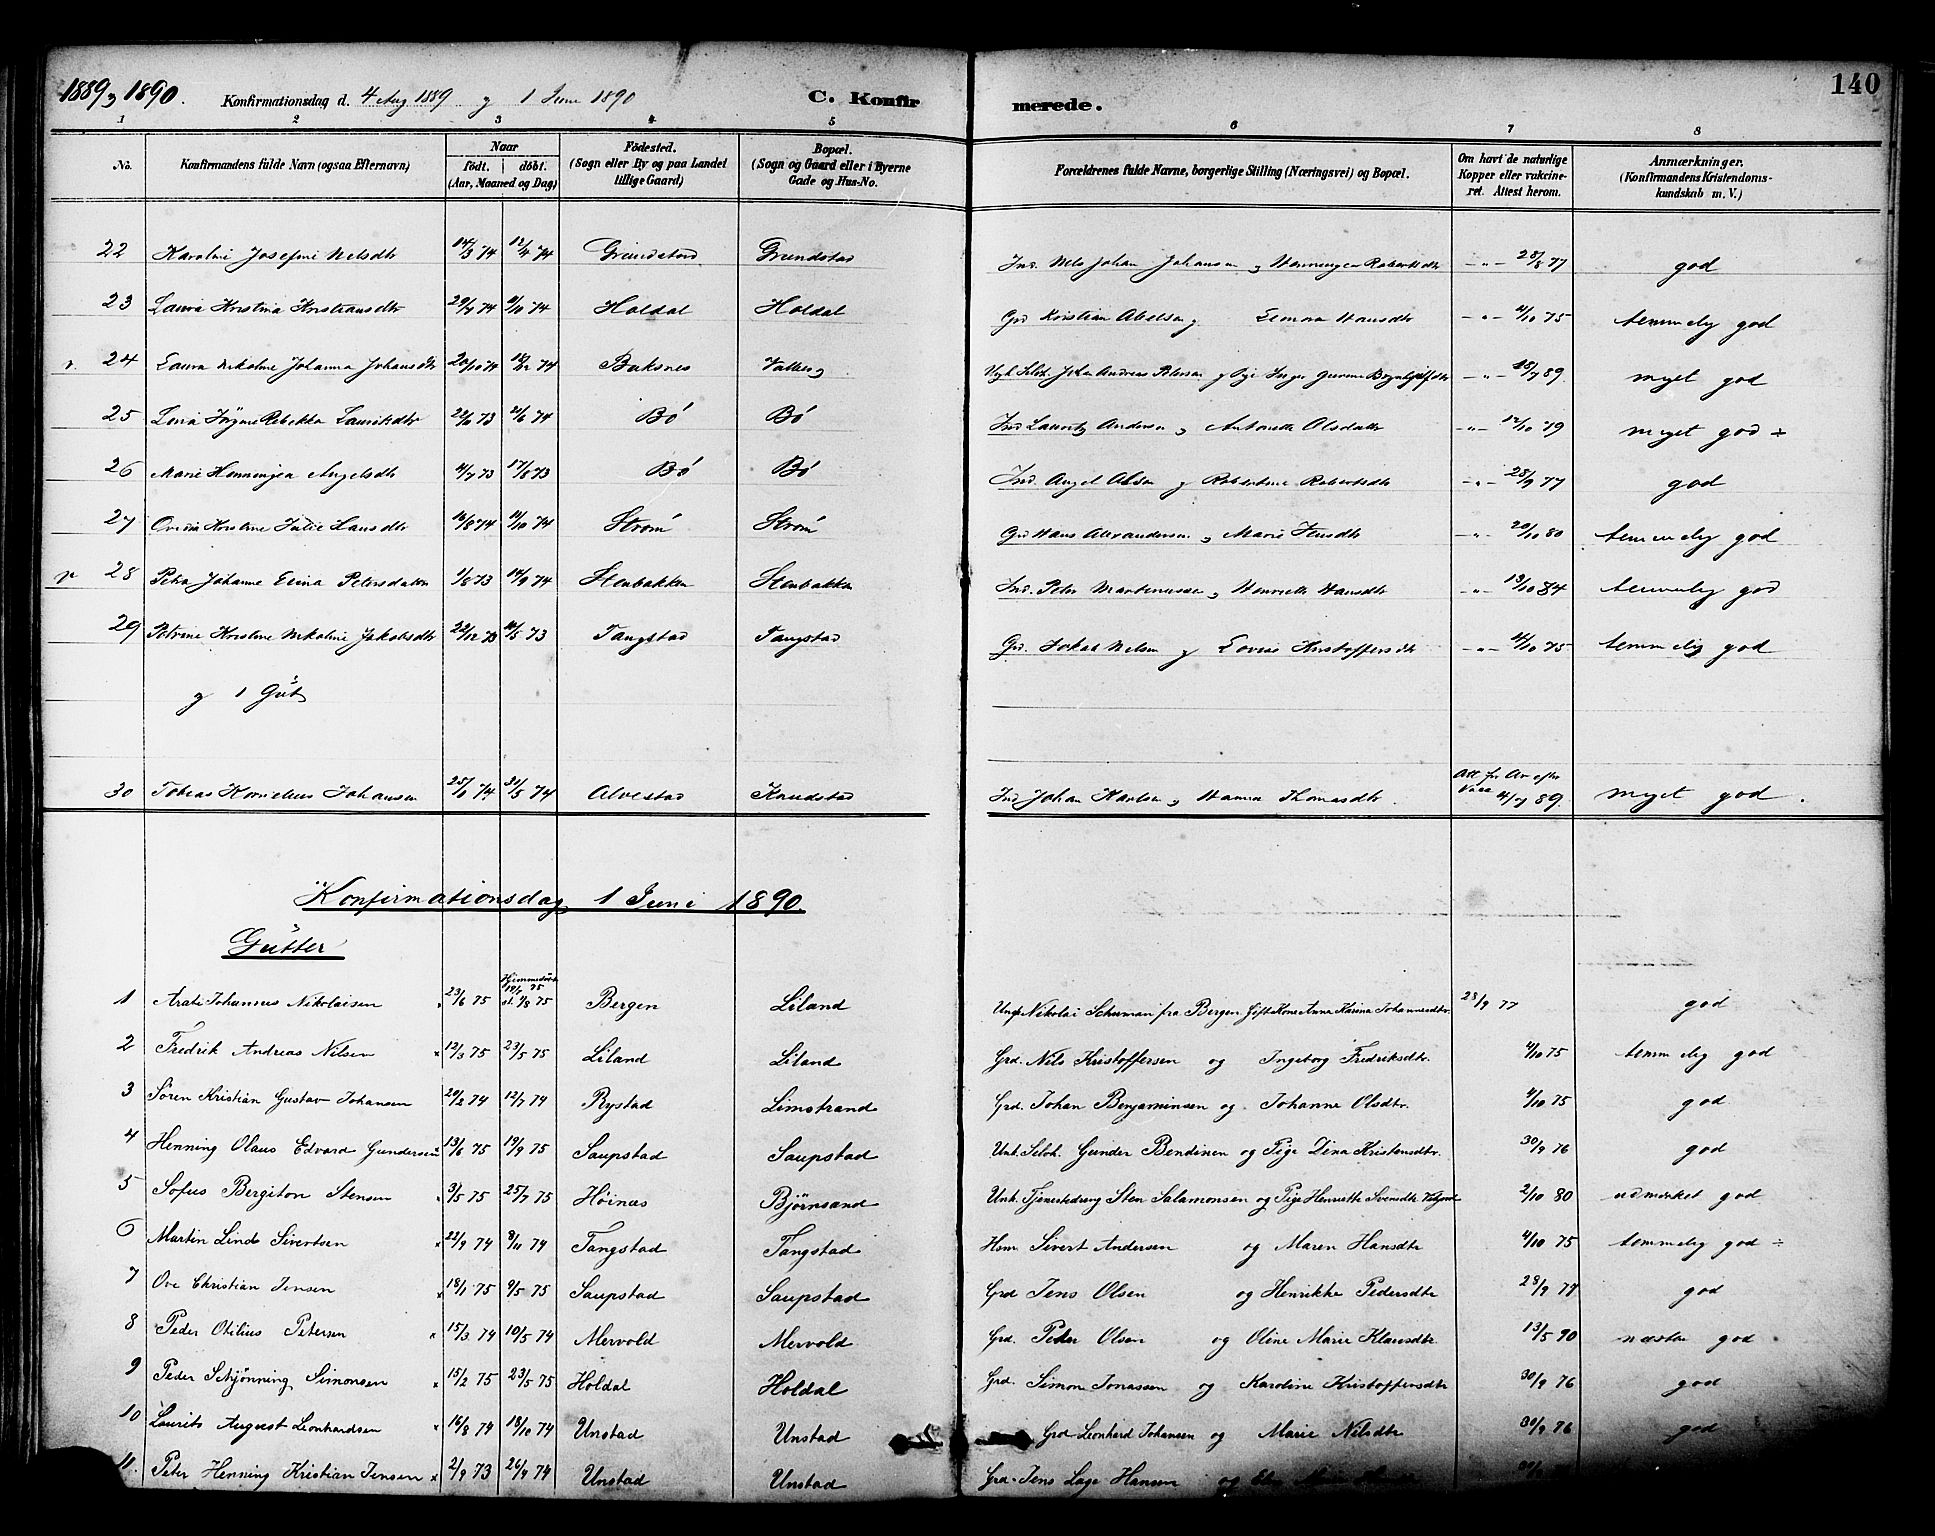 1889 & 1890.
Konfirmationsdag d. 4 Aug 1889 og 1 Juni 1890
C. Konfirmerede.
140
1 2 3 4 5 6 7 8
No. Konfirmandens fulde Navn (ogsaa Efternavn) Naar födt. döbt. (Aar, Maaned og Dag) Födested. (Sogn eller By og paa Landet tillige Gaard) Bopæl. (Sogn og Gaard eller i Byerne Gade og Hus-No. Forældrenes fulde Navne, borgerlige Stilling (Næringsvei) og Bopæl. Om havt de naturlige Kopper eller vakcineret. Attest herom. Anmærkninger. (Konfirmandens Kristendomskundskab m. V.)
22 Karoline Josefine Nelsdtr 14/3 74 12/4 74 Grundstad Grundstad Ind. Nels Johan Johansen og Henningea Robertsdtr -"- 28/8 77 god
23 Laura Kristina Kristiansdtr 29/7 74 9/10 74 Holdal Holdal Grd Kristian Abelsen og Lemora Hansdtr -"- 4/10 75 temmelig god
24 Laura Nikoline Johanna Johansdtr 20/10 74 Buksnes Valberg Johan Andreas Petersen og Pige Inger -"- 15/7 89. meget god
25 Lina Rebekka Lauritsdtr 22/11 73 2/6 74 Bö Bö Ind Lauritz Andersen og Antonette Olsdatter -"- 12/10 79 meget god ÷
26 Marie Henningea Angelsdtr 4/7 73 17/8 73 Bö Bö Ind. Angel Olsen og Robertine Robertsdtr -"- 28/9 77 god
27 Kristine Julie Hansdtr 16/8 74 11/10 74 Ström Ström Grd Hans Alexandersen og Marie Jensdtr -"- 20/10 80 temmelig god
28 Petra Johanne Elina Petersdatter 1/8 73 14/9 74 Stenbakken Stenbakken Ind. Peter Martinussen og Henriette Hansdtr -"- 13/10 84 temmelig god
29 Petrine Kristine Nikoline Jakobsdtr 22/12 73 14/5 73 Tangstad Tangstad Grd. Jakob Nelsen og Lovise Kristoffersdtr -"- 4/10 75 temmelig god
og 1 Gut
30 Tobias Kornelius Johansen 25/1 74 31/5 74 Alvestad Knudstad Ind Johan Karlsen og Hanna Thomasdtr. Att. fr. 4/7 89. meget god.
Konfirmationsdag 1 Juni 1890.
Gutter
1 Johannes Nikolaisen 23/6 75 Hjemmedöbt 19/7 75 st. 9/8 75 Bergen Liland Ungk. Nikolai Schuman fra Bergen Gift Kone Anna Karina Johannesdtr. 28/9 77 god
2 Fredrik Andreas Nilsen x 12/3 75 23/5 75 Liland Liland Grd. Nils Kristoffersen og Ingeborg Fredriksdtr. 4/10 75 temmelig god
3 Sören Kristian Gustav Johansen 29/2 74 12/7 74 Rystad Limstrand Grd. Johan Benjaminsen og Johanna Olsdtr. 4/10 75 god
4 Henning Olaus Edvard Gundersen 13/6 75 19/9 75 Saupstad Saupstad Unk. Selvk. Gunder Bendixen og Pige Dina Kristensdtr. 30/9 76 god
5 Sofus Bergiton Stensen 3/5 75 25/7 75 Höines Björnsand Unk. Tjenestedreng Sten Salamonsen og Pige Henriette Svensdtr 2/10 80 udmærket god
6 Martin Lind Sivertsen x 22/9 74 8/11 74 Tangstad Tangstad Hsm. Sivert Andersen og Maren Hansdtr 4/10 75 temmelig god ÷
7 Ove Christian Jensen x 18/1 75 9/5 75 Saupstad Saupstad Grd Jens Olsen og Henrikke Pedersdtr 28/9 77 god
8 Peder Otilius Petersen x 15/3 74 10/5 74 Mervold Mervold. Grd. Peder Olsen og Oline Marie Klausdtr. 13/5 90 næsten god
9 Peder Schjönning Simonsen x 15/2 75 23/5 75 Holdal Holdal Grd. Simon Jonassen og Karoline Kristoffersdtr 30/9 76 god
10 Laurits August Leonhardsen x 16/8 74 18/10 74 Unstad Unstad Grd Leonhard Johansen og Marie Nilsdtr. 30/9 76 god
11. Peter Henning Kristian Jensen x 2/9 73 26/9 74 Unstad Unstad Grd. Jens Lage Hansen og